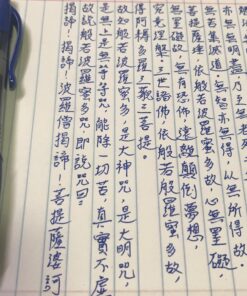 明盡乃
亦無無
無苦集滅道.無智亦無得.以無所得故.
菩提薩埵,依般若波羅蜜多故心無罣礙,
無罣礙故,無有恐怖,遠離顛倒夢想
究竟涅槃.三世諸佛依般若般羅蜜多故,
得阿耨多羅三藐三菩提.
故知般若波羅蜜多,是大神咒,是大明咒,
是無上是無等等咒,能除一切苦,真實不虛
故說般若波羅蜜多咒即說咒曰:
揭諦!揭諦!波羅僧揭諦!菩提薩婆訶